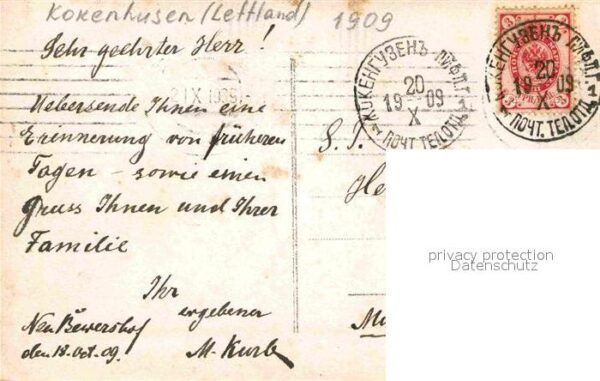 Kokenhusen (Lettland) 1909
Sehr geehrter Herr!
Uebersende Ihnen eine
Erennerung von früheren
Tagen – sowie einen
Gruss Ihnen und Ihrer
Familie
Ihr
ergebener
Neu Bewershof
den 18. oct. 09.
M. Kurb
КОКЕНГУЗЕНЪ ЛИФЛ.Г.
20
19 09
X
ПОЧТ. ТЕЛ. ОТД.
КОКЕНГУЗЕНЪ ЛИФЛ.Г.
20
19 09
X
ПОЧТ. ТЕЛ. ОТД.
3
S. T.
He
privacy protection
Datenschutz